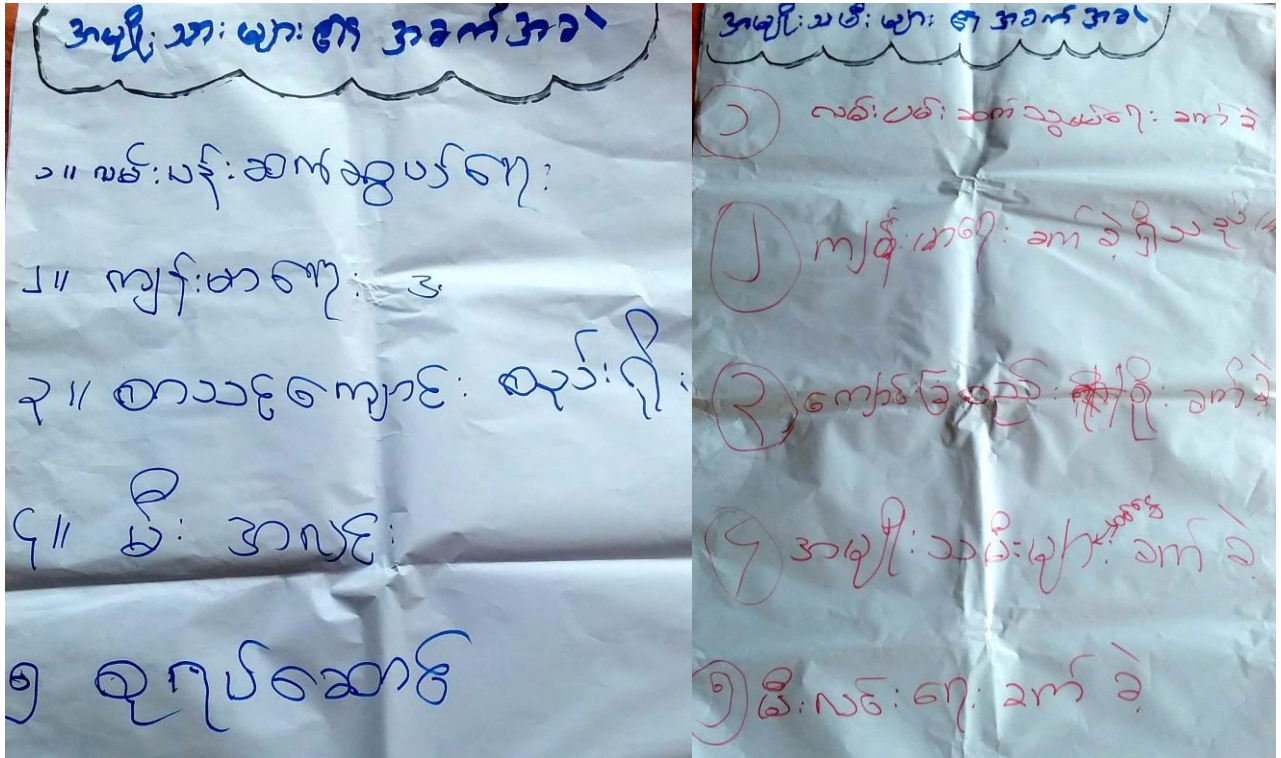 အမျိုးသားများ၏ အခက်အခဲ
၁။ လမ်းပန်းဆက်ဆွယ်ရေး
၂။ ကျန်းမာရေး
၃။ စာသင်ကျောင်း စည်းရိုး
၄။ မီးအလင်း
၅ စုရပ်ဆောင်
အမျိုးသမီးများ၏ အခက်အခဲ
၁ လမ်းပမ်းဆက်သွယ်ရေး ခက်ခဲ
၂ ကျန်းမာရေး ခက်ခဲ့ရှိသည်
၃ ကျောင်းခြံစည်းရိုး ခက်ခဲ့
၄ အမျိုးသမီးများ ခက်ခဲ့
၅ မီးလင်းရေး ခက်ခဲ့